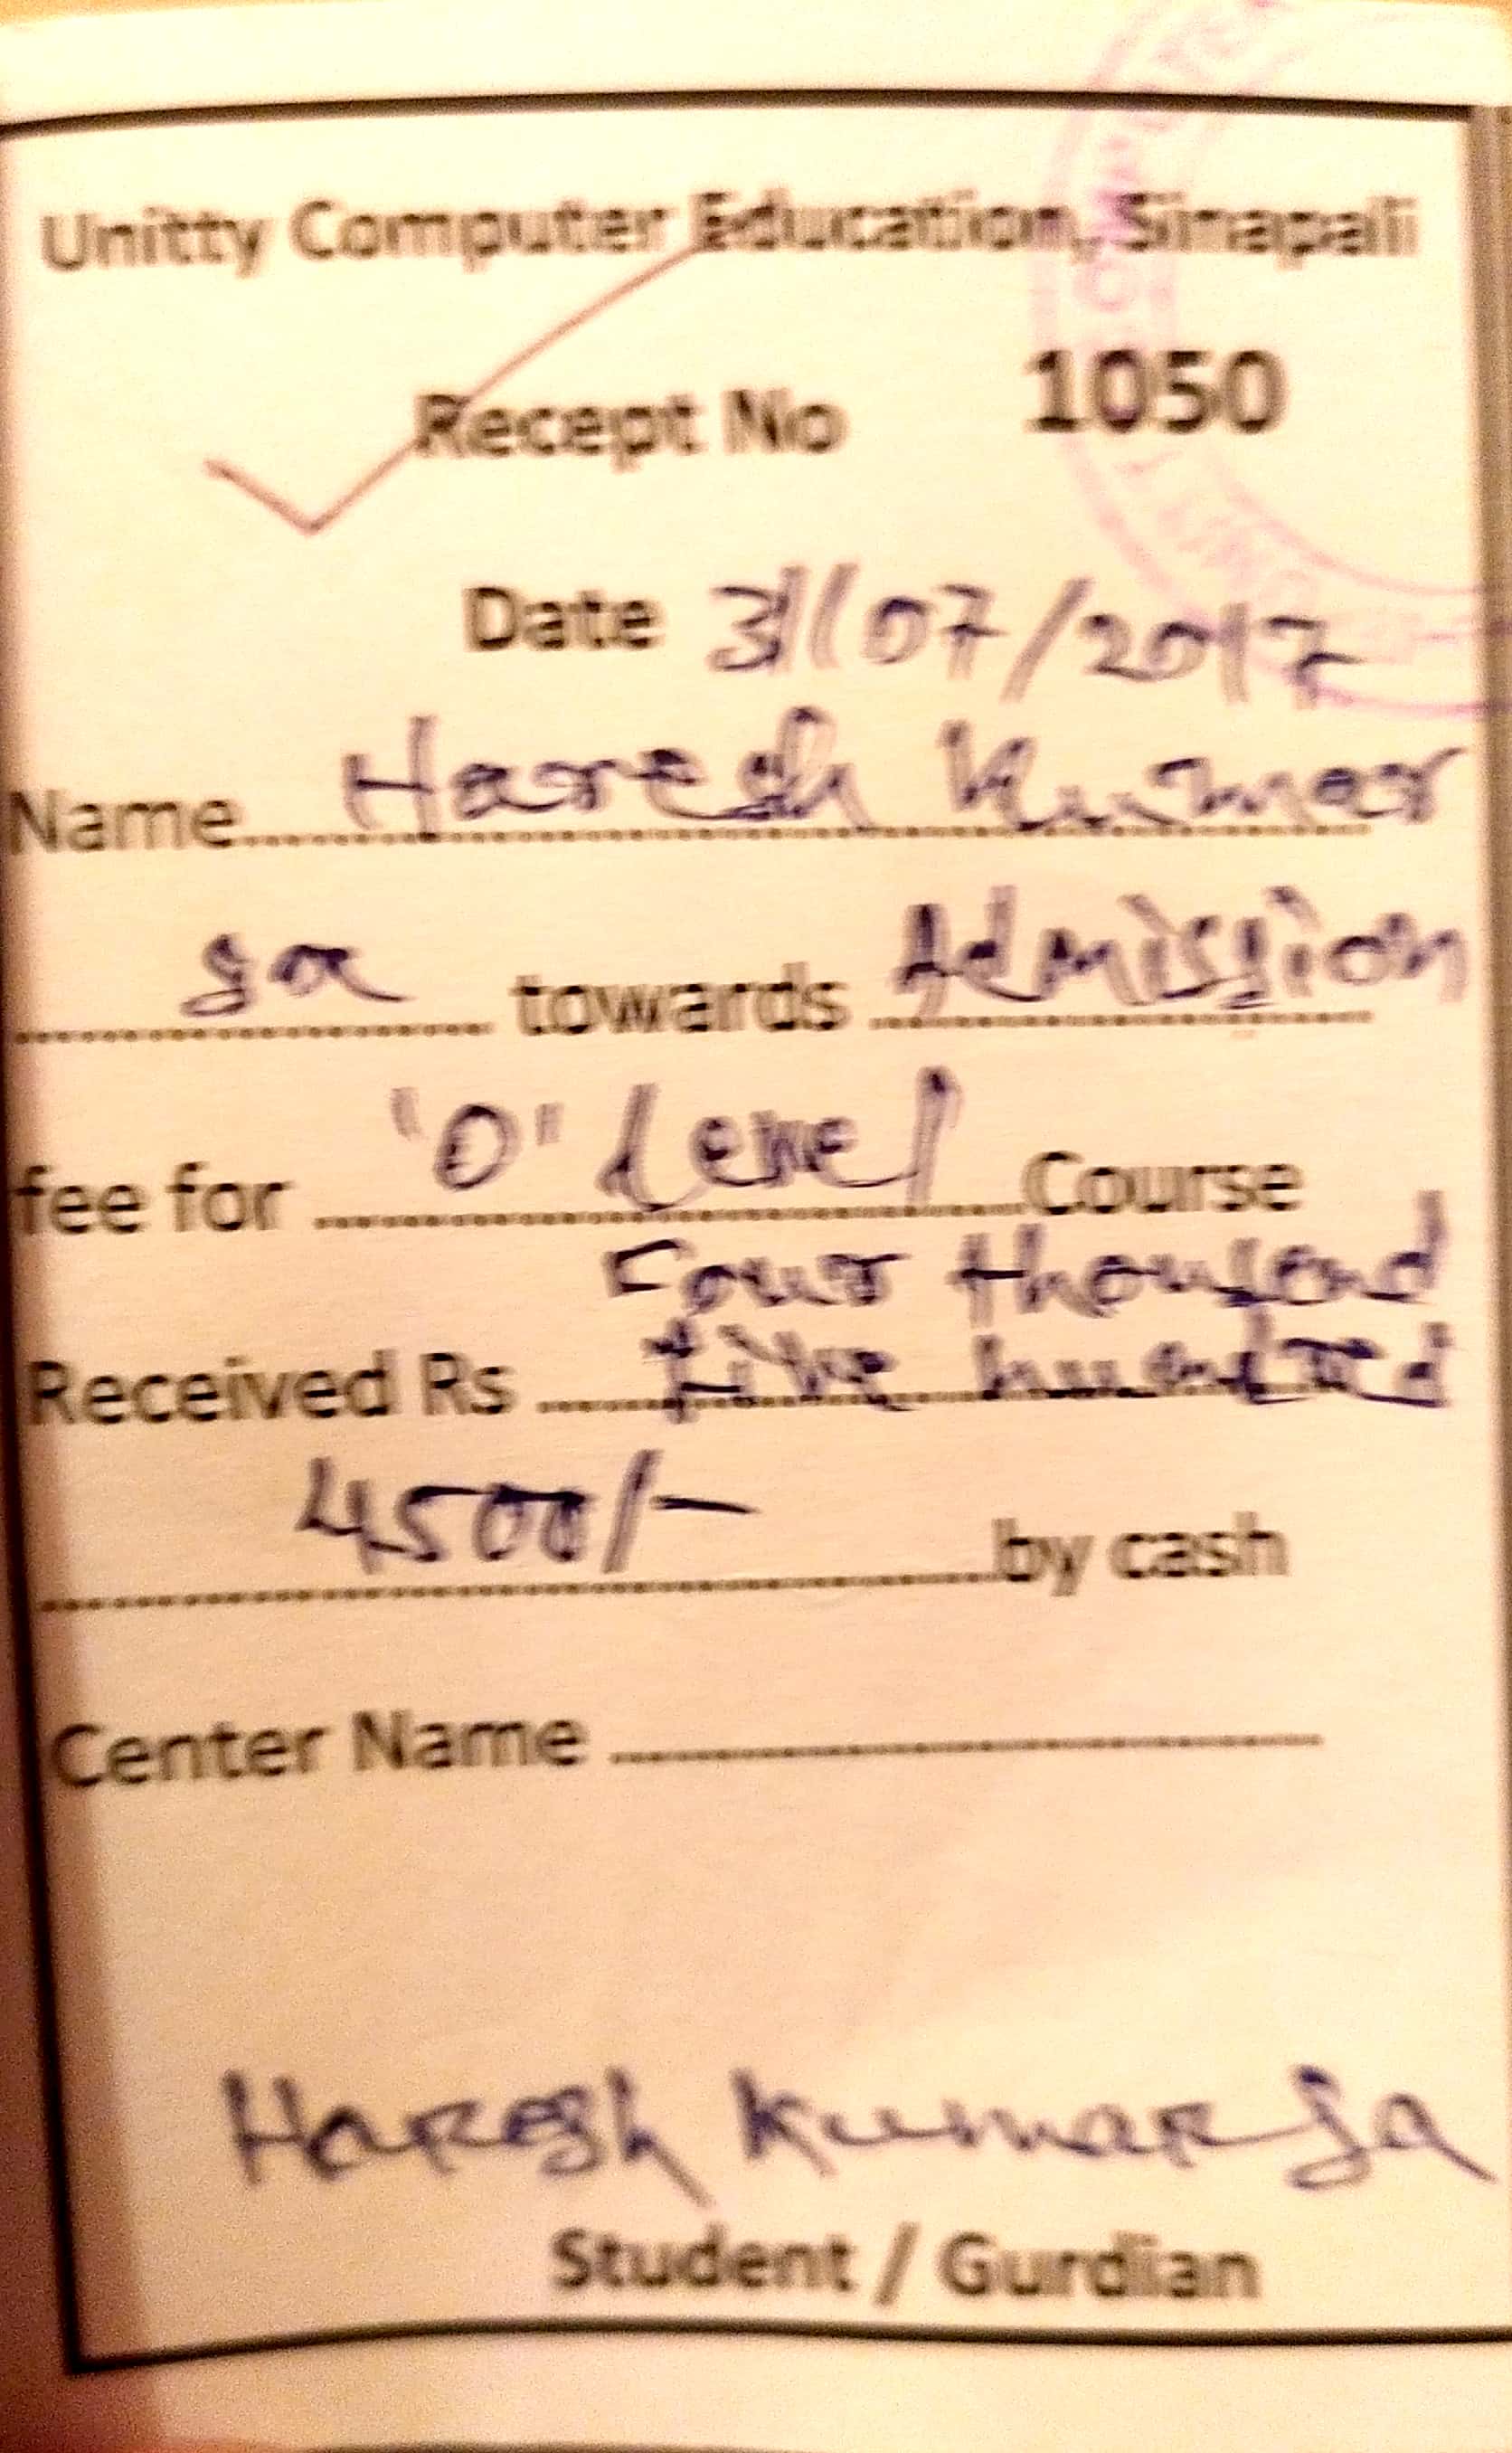 Unitty Computer Education, Sinapali
Recept No 1050
Date 31/07/2017
Name Haresh Kumar
Sa towards Admission
fee for "O" Level Course
Four thousand
Received Rs five hundred
4500/- by cash
Center Name
Haresh Kumar Sa
Student / Gurdian